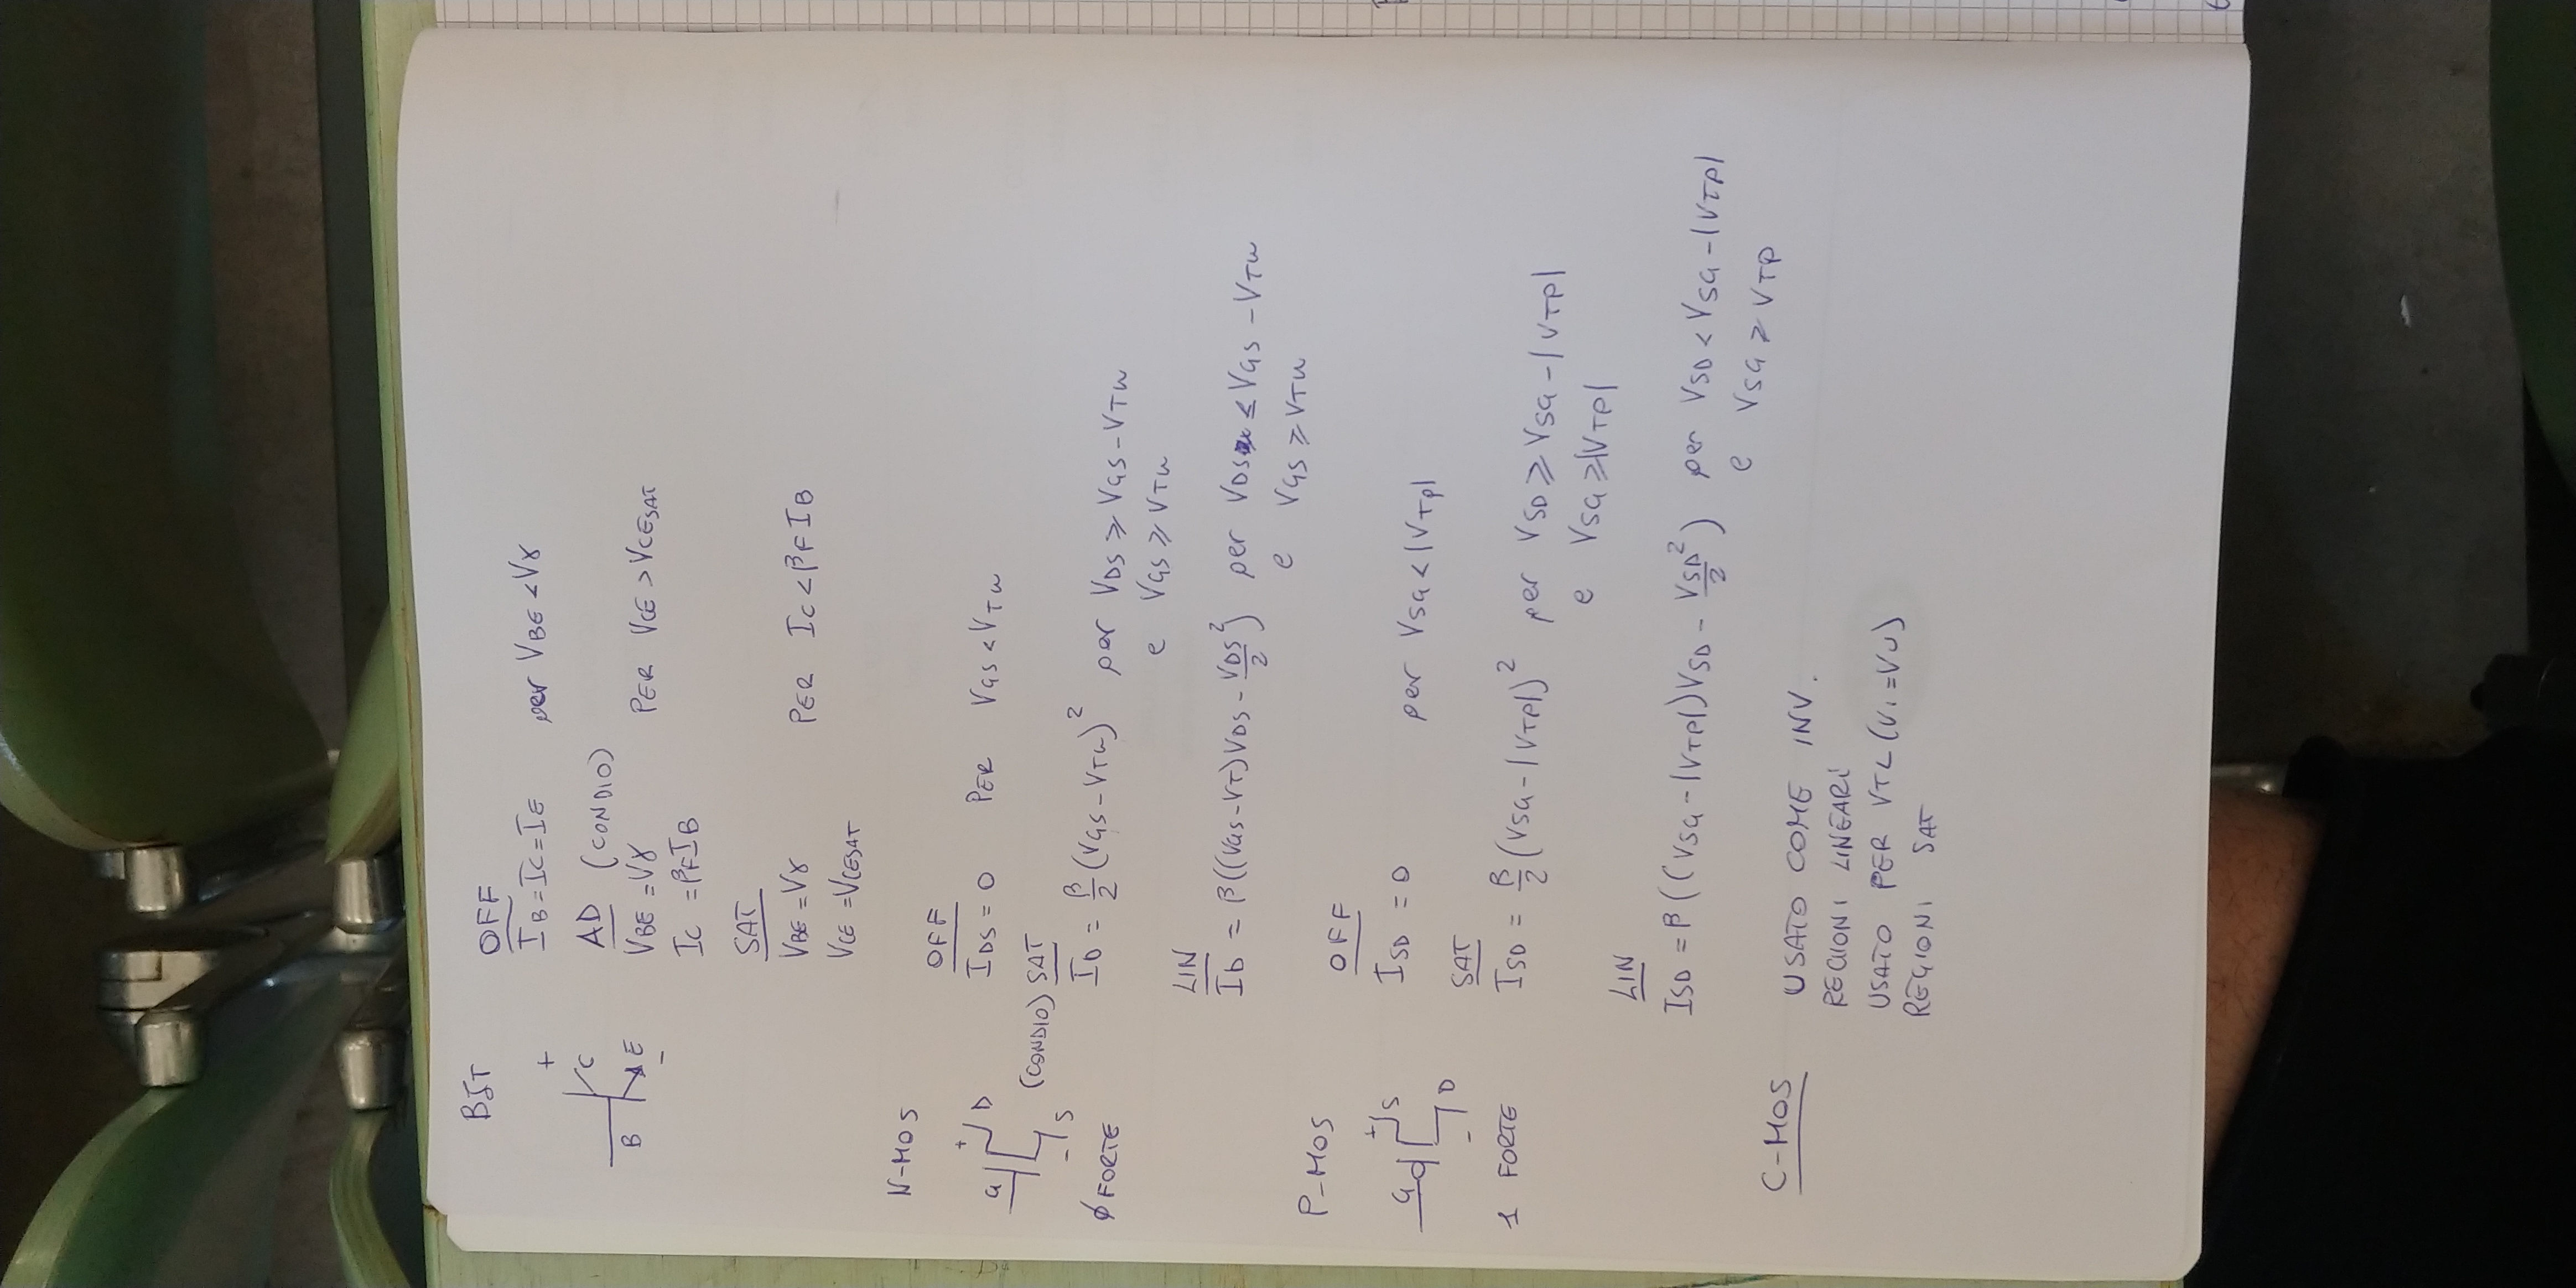 BJT
OFF
IB = IC = IE per VBE < Vγ
+
C
B
E
-
AD (CONDIO)
VBE = Vγ PER VCE > VCESAT
IC = βFIB
SAT
VBE = Vγ PER IC < βFIB
VCE = VCESAT
N-MOS
OFF
IDS = 0 PER VGS < VTN
G + D - S
(CONDIO) SAT
∅ FORTE
ID = β/2 (VGS - VTN)² per VDS ≥ VGS - VTN
e VGS ≥ VTN
LIN
ID = β((VGS - VT)VDS - VDS²/2) per VDS ≤ VGS - VTN
e VGS ≥ VTN
P-MOS
OFF
ISD = 0 per VSG < |VTP|
G + S - D
SAT
1 FORTE
ISD = β/2 (VSG - |VTP|)² per VSD ≥ VSG - |VTP|
e VSG ≥ |VTP|
LIN
ISD = β((VSG - |VTP|)VSD - VSD²/2) per VSD < VSG - |VTP|
e VSG ≥ VTP
C-MOS
USATO COME INV.
REGIONI LINEARI
USATO PER VTL (VI = VU)
REGIONI SAT